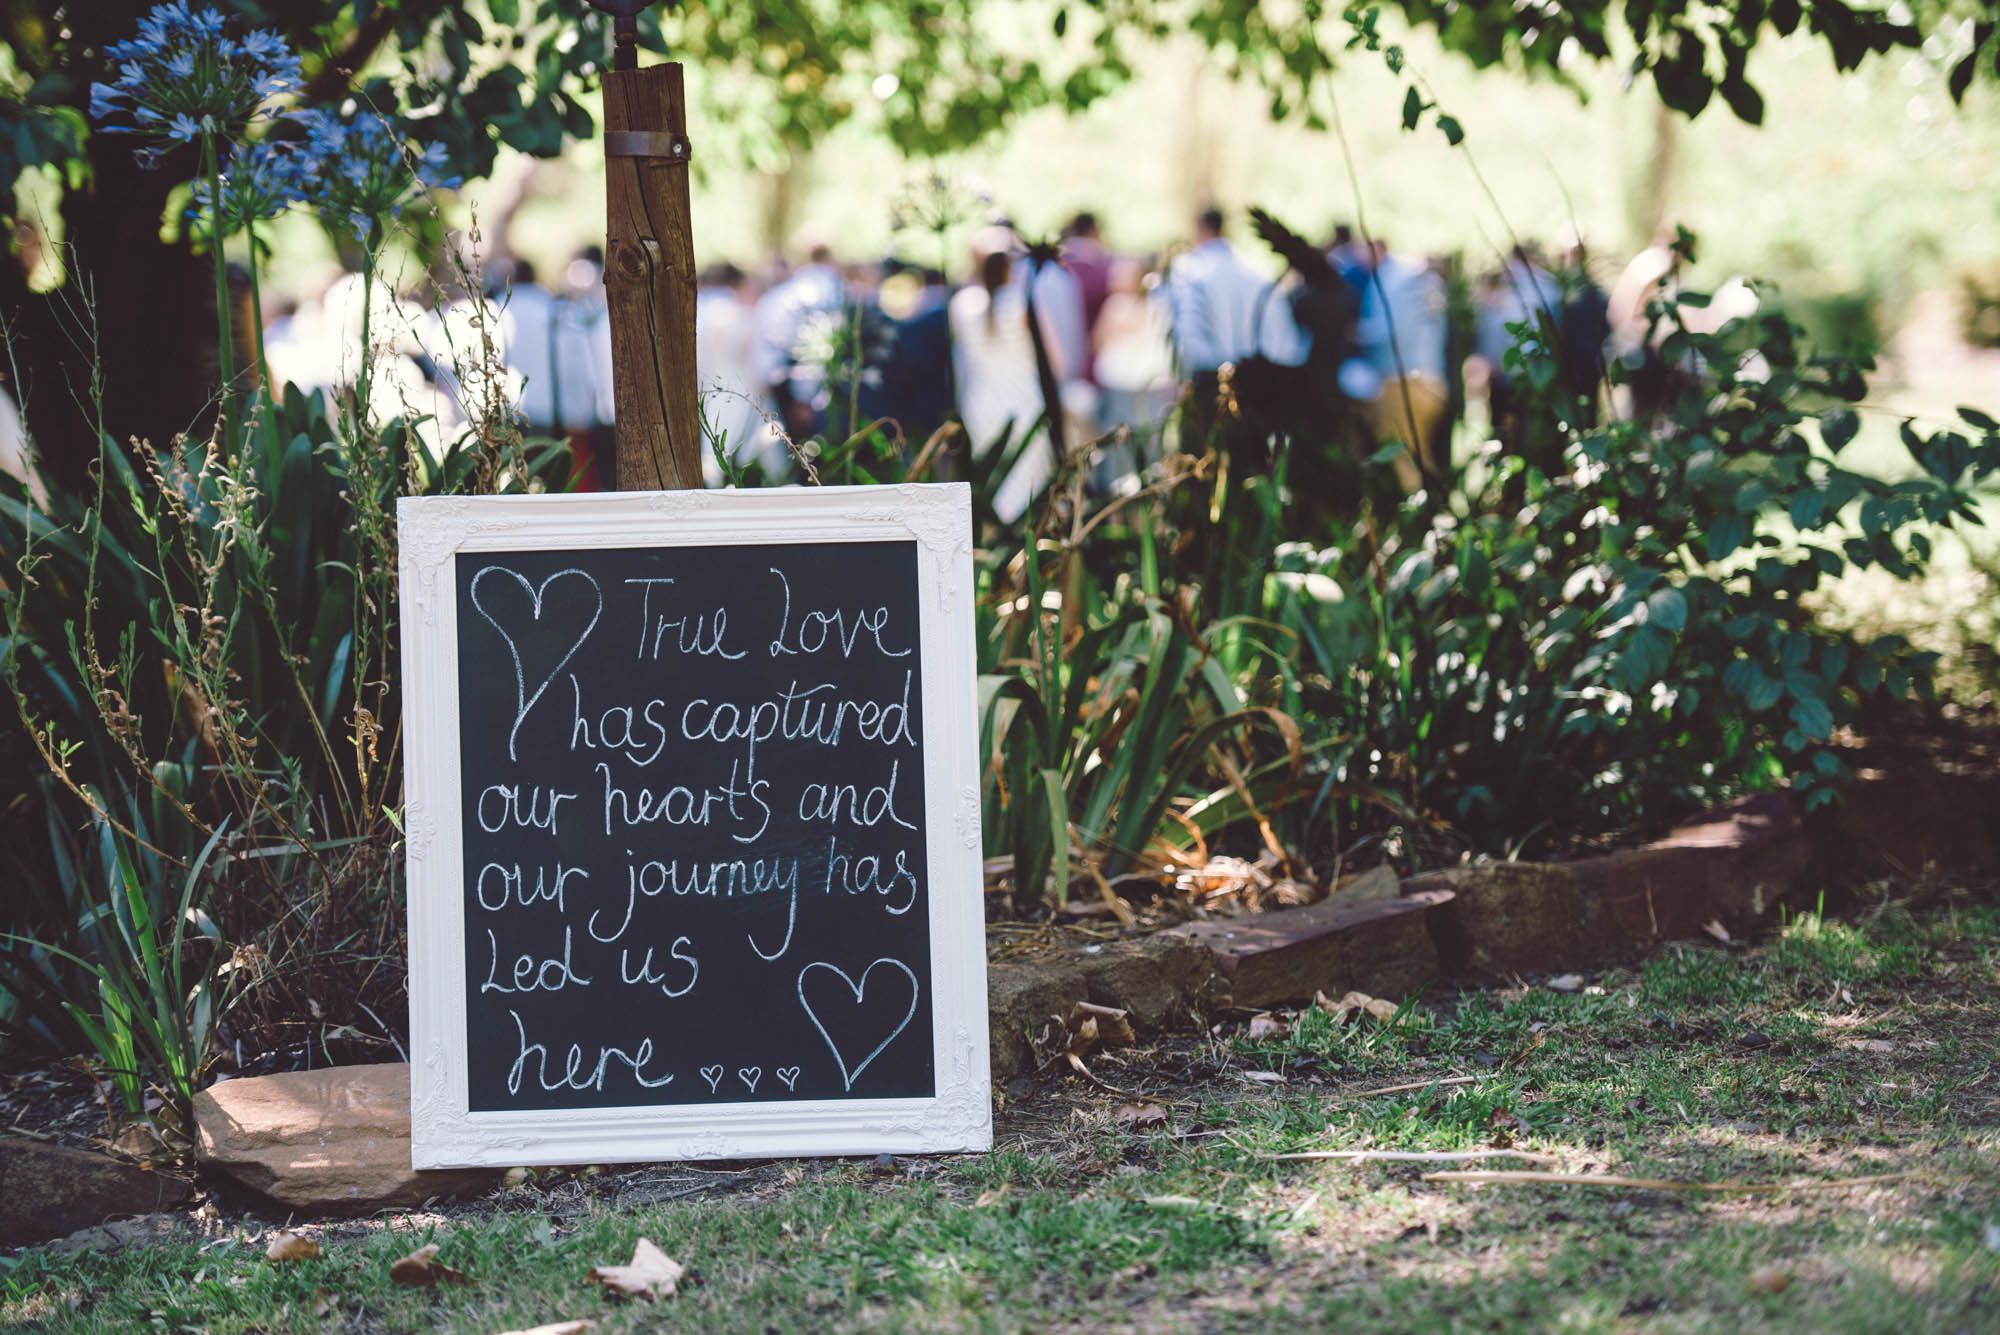 True Love
has captured
our hearts and
our journey has
Led us
here ...